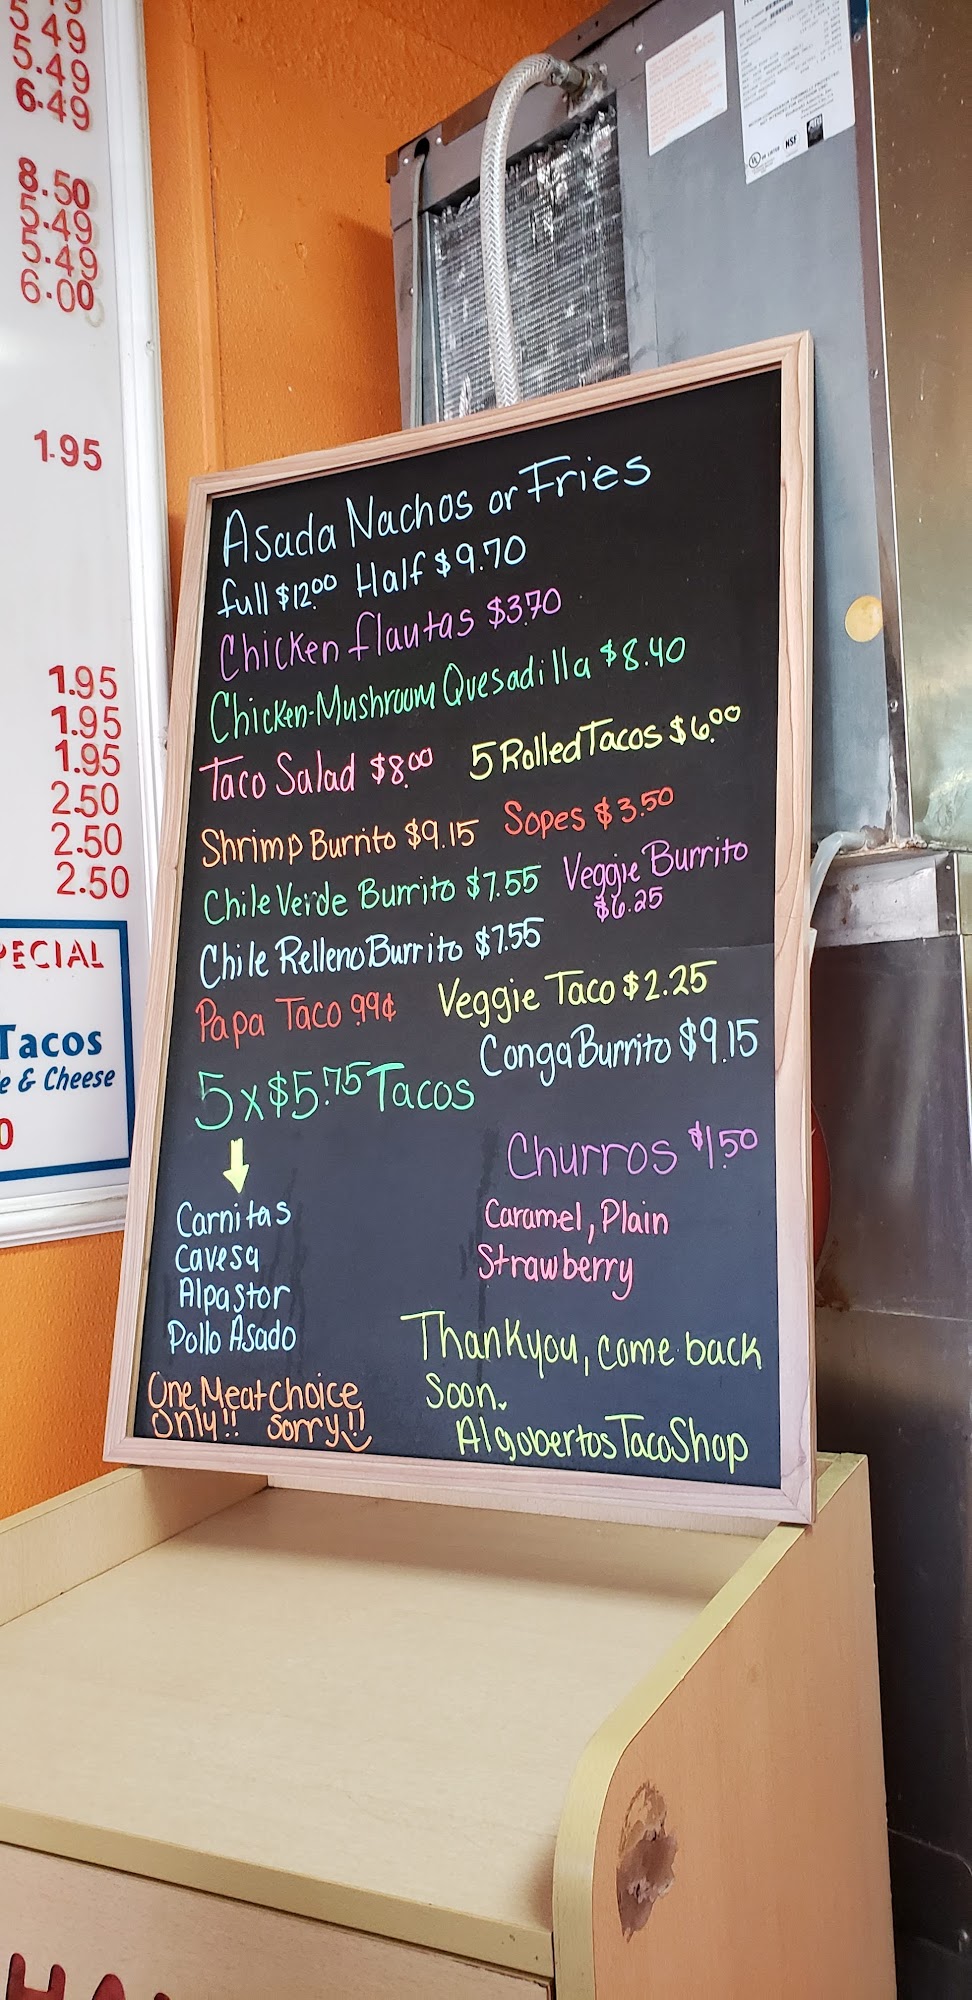 5.49
5.49
6.49
8.50
5.49
5.49
6.00
1.95
1.95
1.95
1.95
2.50
2.50
2.50
PECIAL
Tacos
e & Cheese
0
NSF
Asada Nachos or Fries
full $12.00 Half $9.70
Chicken flautas $3.70
Chicken-Mushroom Quesadilla $8.40
Taco Salad $8.00 5 Rolled Tacos $6.00
Shrimp Burrito $9.15 Sopes $3.50
Chile Verde Burrito $7.55 Veggie Burrito
$6.25
Chile Relleno Burrito $7.55
Papa Taco .99¢ Veggie Taco $2.25
Conga Burrito $9.15
5 x $5.75 Tacos
Churros $1.50
Carnitas
Cavesa
Alpastor
Pollo Asado
Caramel, Plain
Strawberry
One Meat Choice
Only!! Sorry!!
Thankyou, come back
Soon.
Algobertos Taco Shop